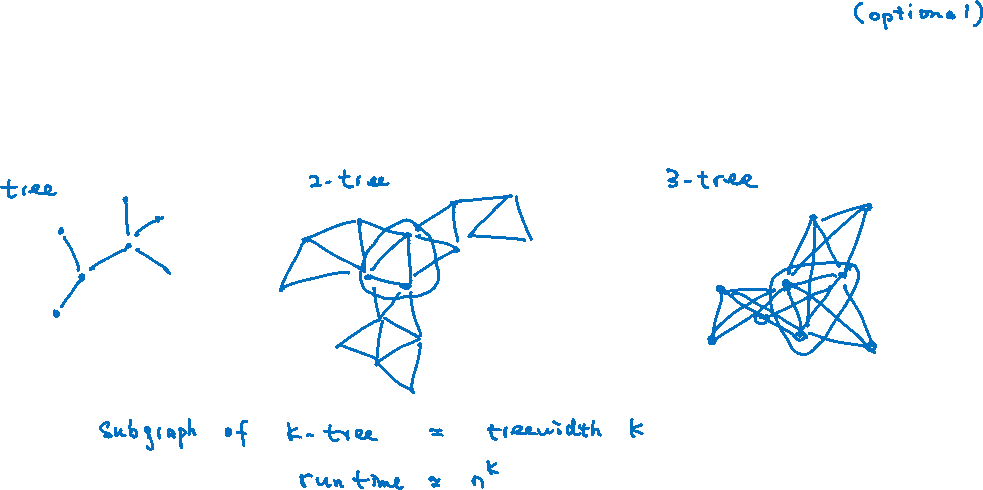 (optional)
tree
2-tree
3-tree
subgraph of k-tree ≈ treewidth k
runtime ≈ n^k